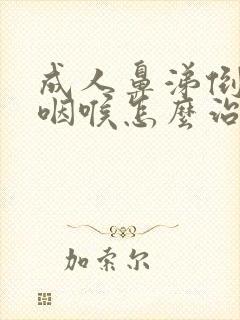 成人鼻涕倒
咽喉怎麼治
加索尔